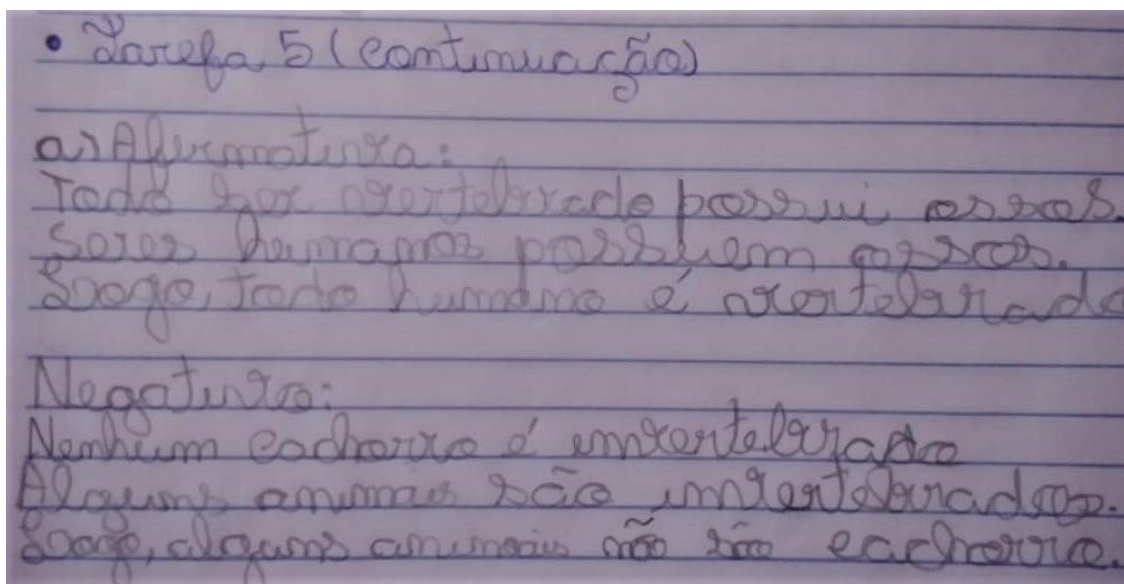 • Tarefa 5 (continuação)
a) Afirmativa:
Todo ser vertebrado possui ossos.
Seres humanos possuem ossos.
Logo, todo humano é vertebrado
Negativa:
Nenhum cachorro é invertebrado
Alguns animais são invertebrados.
Logo, alguns animais não são cachorro.